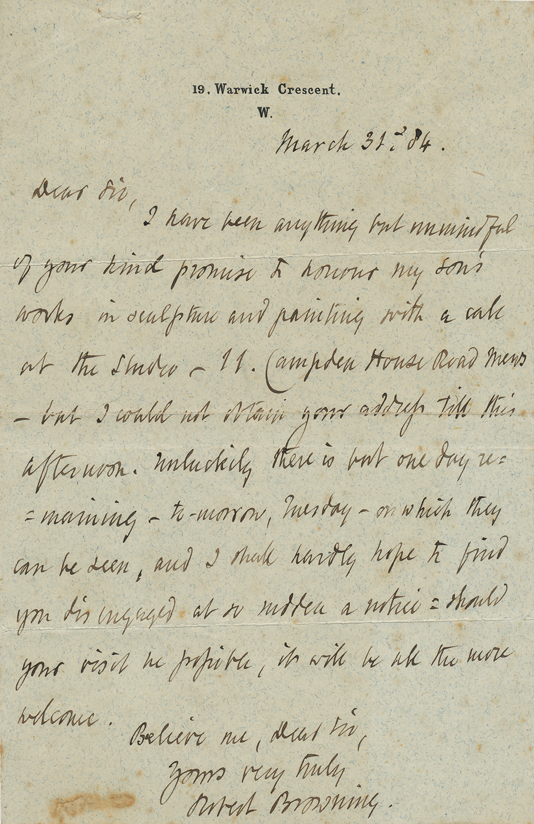 19, Warwick Crescent,
W.
March 31st 84.
Dear Sir,
I have been anything but unmindful
of your kind promise to honour my son's
works in sculpture and painting with a call
at the Studio – 11. Campden House Road Mews
– but I could not obtain your address till this
afternoon. Unluckily there is but one day re=
=maining – to-morrow, Tuesday – on which they
can be seen, and I shall hardly hope to find
you disengaged at so sudden a notice = should
your visit be possible, it will be all the more
welcome.
Believe me, Dear Sir,
Yours very truly
Robert Browning.